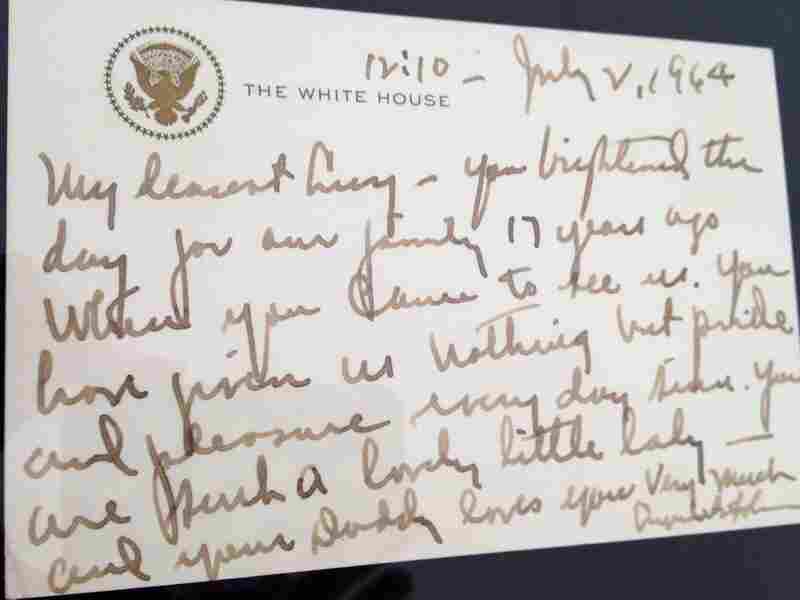 12:10 – July 2, 1964
THE WHITE HOUSE
My dearest Lucy – you brightened the
day for our family 17 years ago
when you came to see us. You
have given us nothing but pride
and pleasure every day since. You
are such a lovely little lady –
and your Daddy loves you very much